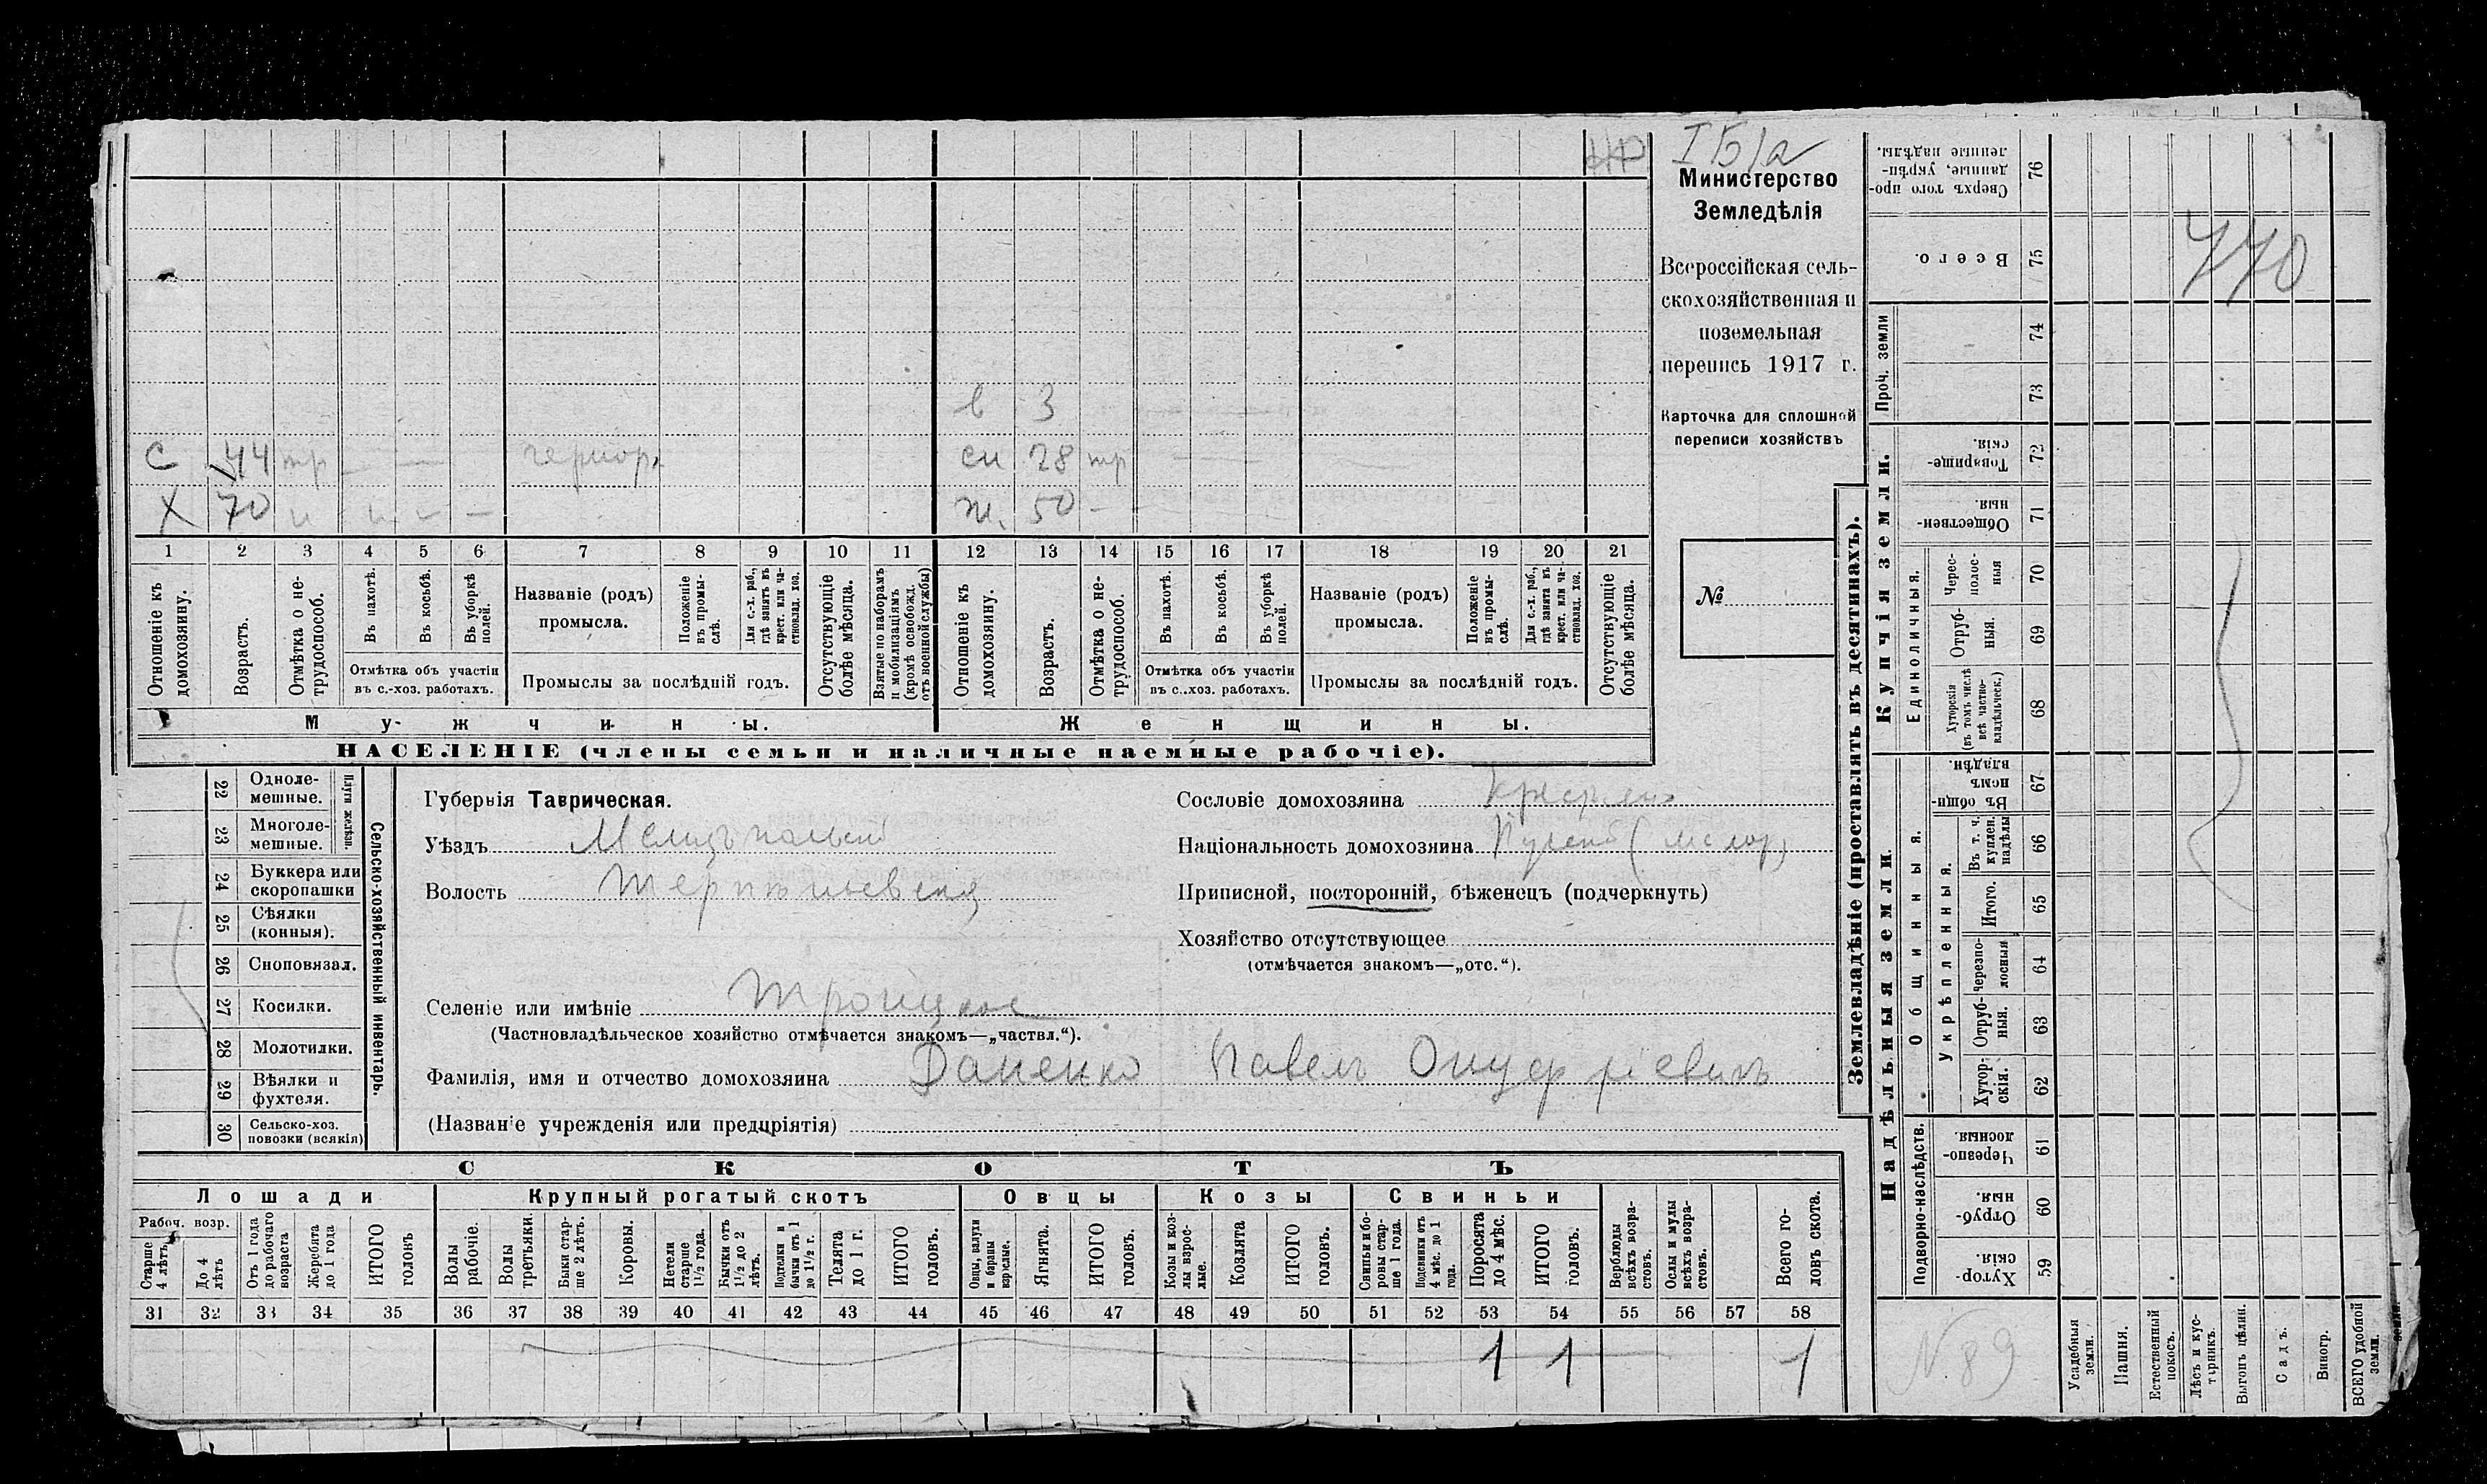 I Б/а
Министерство
Земледѣлія
Всероссійская сель-
скохозяйственная и
поземельная
перепись 1917 г.
Карточка для сплошной
переписи хозяйствъ
№
в 3
с 44 тр — — сн 28 тр
Х 70 ж. 50 —
1 2 3 4 5 6 7 8 9 10 11 12 13 14 15 16 17 18 19 20 21
Отношеніе къ домохозяину.
Возрастъ.
Отмѣтка о не-трудоспособ.
Въ пахотѣ.
Въ косьбѣ.
Въ уборкѣ полей.
Отмѣтка объ участіи
въ с.-хоз. работахъ.
Названіе (родъ)
промысла.
Положеніе въ промы-слѣ.
Для с.-х. раб., гдѣ занятъ въ крест. или ча-стновлад. хоз.
Промыслы за послѣдній годъ.
Отсутствующіе болѣе мѣсяца.
Взятые по наборамъ и мобилизаціямъ (кромѣ освобожд. отъ военной службы)
Отношеніе къ домохозяину.
Возрастъ.
Отмѣтка о не-трудоспособ.
Въ пахотѣ.
Въ косьбѣ.
Въ уборкѣ полей.
Отмѣтка объ участіи
въ с..хоз. работахъ.
Названіе (родъ)
промысла.
Положеніе въ промы-слѣ.
Для с.-х. раб., гдѣ занята въ крест. или ча-стновлад. хоз.
Промыслы за послѣдній годъ.
Отсутствующіе болѣе мѣсяца.
Мужчины.
Женщины.
НАСЕЛЕНІЕ (члены семьи и наличные наемные рабочіе).
22 Одноле-мешные.
23 Многоле-мешные.
Плуги желѣзн.
24 Буккера или скоропашки
25 Сѣялки (конныя).
26 Сноповязал.
27 Косилки.
28 Молотилки.
29 Вѣялки и фухтеля.
30 Сельско-хоз. повозки (всякія)
Сельско-хозяйственный инвентарь.
Губернія Таврическая.
Уѣздъ Мелитопольскій
Волость Терпѣньевская
Сословіе домохозяина крестьян
Національность домохозяина
Приписной, посторонній, бѣженецъ (подчеркнуть)
Хозяйство отсутствующее
(отмѣчается знакомъ—„отс.“).
Селеніе или имѣніе Троицкое
(Частновладѣльческое хозяйство отмѣчается знакомъ—„частвл.“).
Фамилія, имя и отчество домохозяина Даненко Павелъ Онуфріевичъ
(Названіе учрежденія или предпріятія)
СКОТЪ
Лошади Крупный рогатый скотъ Овцы Козы Свиньи
Рабоч. возр.
Старше 4 лѣтъ
До 4 лѣтъ
Отъ 1 года до рабочаго возраста
Жеребята до 1 года
ИТОГО головъ
Волы рабочіе.
Волы третьяки.
Быки стар-ше 2 лѣтъ.
Коровы.
Нетели старше 1½ года.
Бычки отъ 1½ до 2 лѣтъ.
Подтелки и бычки отъ 1 до 1½ г.
Телята до 1 г.
ИТОГО головъ.
Овцы, валухи и бараны взрослые.
Ягнята.
ИТОГО головъ.
Козы и коз-лы взрос-лые.
Козлята
ИТОГО головъ.
Свиньи и бо-ровы стар-ше 1 года.
Подсвинки отъ 4 мѣс. до 1 года.
Поросята до 4 мѣс.
ИТОГО головъ.
Верблюды всѣхъ возра-стовъ.
Ослы и мулы всѣхъ возра-стовъ.
Всего го-ловъ скота.
31 32 33 34 35 36 37 38 39 40 41 42 43 44 45 46 47 48 49 50 51 52 53 54 55 56 57 58
1 1 1
Землевладѣніе (проставлять въ десятинахъ).
Сверхъ того про-данные, укрѣп-ленные надѣлы. 76
Всего. 75
770
Проч. земли
74
73
Купчія земли.
Товарище-скія. 72
Обществен-ныя. 71
Единоличныя.
Черес-полос-ныя 70
Отруб-ныя. 69
Хуторскія (въ томъ числѣ всѣ частно-владѣльческ.) 68
Надѣльныя земли.
Общинныя.
Въ общи-номъ владѣн. 67
Укрѣпленныя.
Въ т. ч. куплен. надѣлы 66
Итого. 65
Черезпо-лосныя 64
Отруб-ныя. 63
Хутор-скія. 62
Подворно-наслѣдств.
Черезпо-лосныя. 61
Отруб-ныя. 60
Хутор-скія. 59
N 89
Усадебныя земли.
Пашня.
Естественный покосъ.
Лѣсъ и кус-тарникъ.
Выгонъ цѣлин.
Садъ.
Виногр.
ВСЕГО удобной земли.